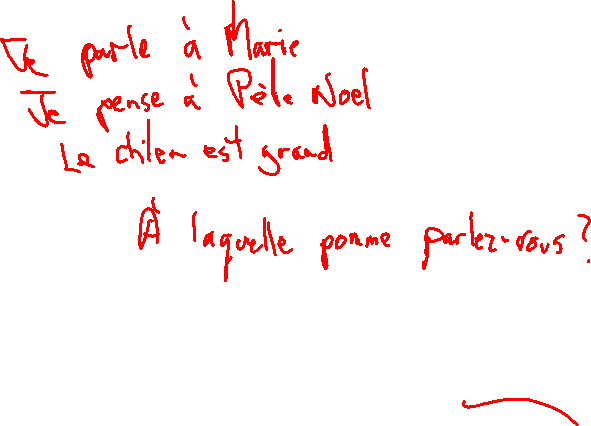 Je parle à Marie
Je pense à Pèle Noel
Le chien est grand
À laquelle pomme parlez-vous?